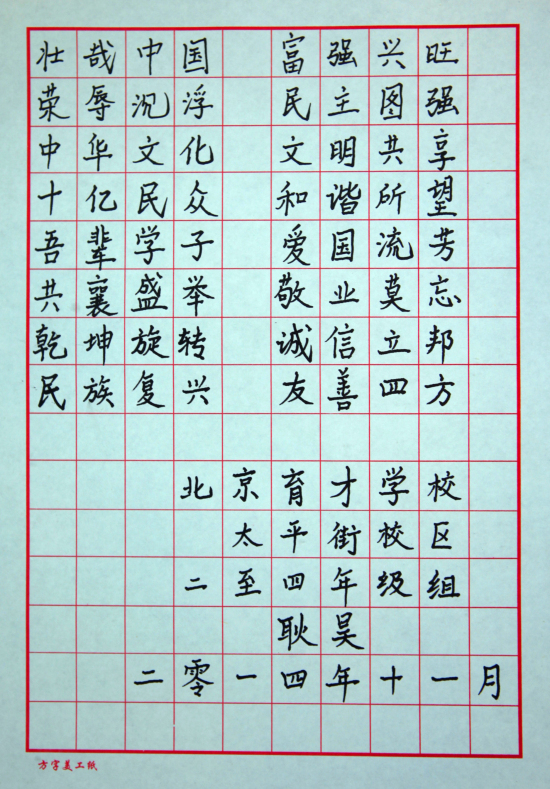 壮哉中国 富强兴旺
荣辱沉浮 民主图强
中华文化 文明共享
十亿民众 和谐所望
吾辈学子 爱国流芳
共襄盛举 敬业莫忘
乾坤旋转 诚信立邦
民族复兴 友善四方
北京育才学校
太平街校区
二至四年级组
耿昊
二零一四年十一月
方字美工纸